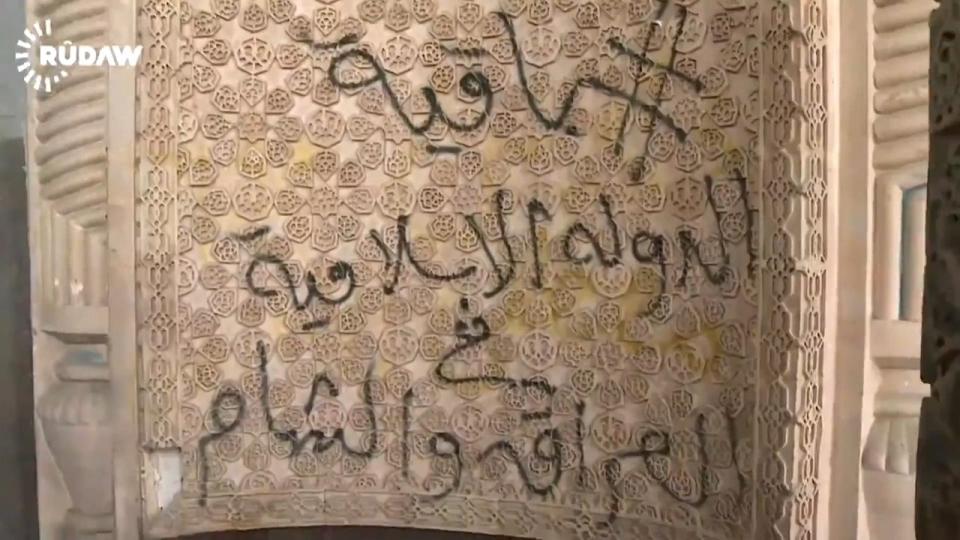 RÛDAW
#باقية
الدولة الاسلامية
في
العراق والشام